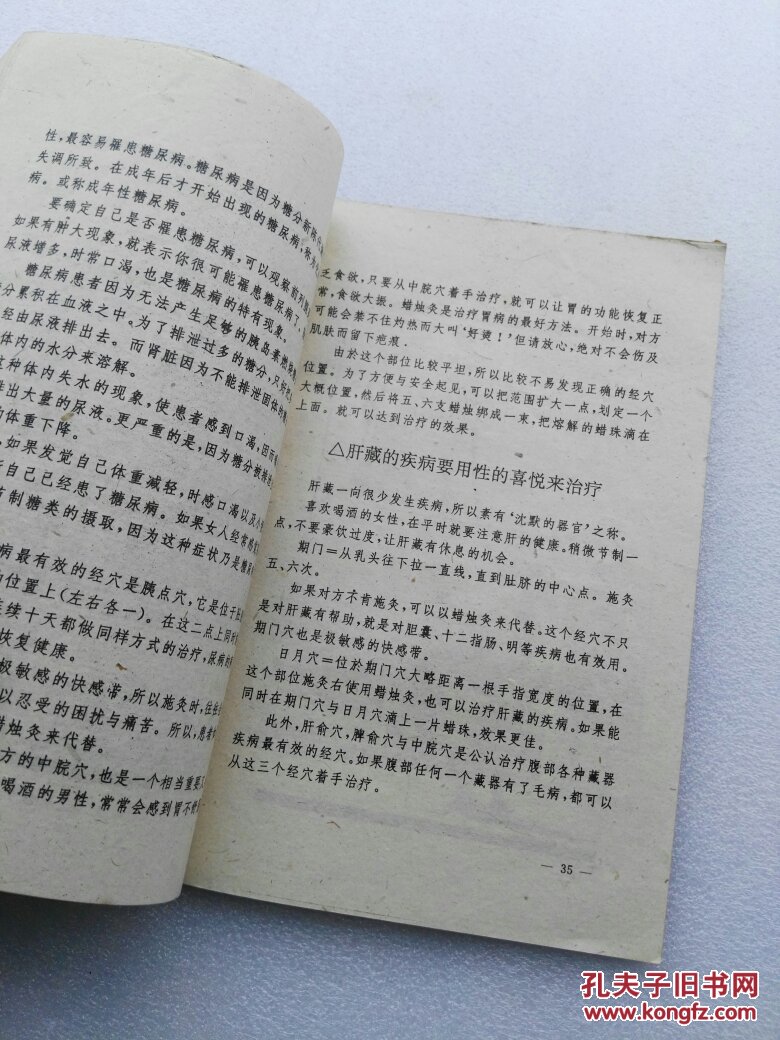 性，最容易罹患糖尿病。糖尿病是因为糖分新陈
失调所致。在成年后才开始出现的糖尿病，称为
病。或称成年性糖尿病。
要确定自己是否罹患糖尿病，可以观察前列
如果有肿大现象，就表示你很可能罹患糖尿病了。
尿液增多，时常口渴，也是糖尿病的特有现象。
糖尿病患者因为无法产生足够的胰岛素
分累积在血液之中。为了排泄过多的糖分，只好
经由尿液排出去。而肾脏因为不能排泄固体的
体内的水分来溶解。
这种体内失水的现象，使患者感到口渴，因而
排出大量的尿液。更严重的是，因为糖分被排
的体重下降。
，如果发觉自己体重减轻，时感口渴以及小
所自己已经患了糖尿病。如果女人经常
节制糖类的摄取，因为这种症状乃是糖
病最有效的经穴是胰点穴，它是位于
的位置上（左右各一）。在这二点上同时
连续十天都做同样方式的治疗，尿病
恢复健康。
极敏感的快感带，所以施灸时，往
以忍受的困扰与痛苦。所以，患者
蜡烛灸来代替。
方的中脘穴，也是一个相当重要
喝酒的男性，常常会感到胃不
乏食欲，只要从中脘穴着手治疗，就可以让胃的功能恢复正
常，食欲大振。蜡烛灸是治疗胃病的最好方法。开始时，对方
可能会禁不住灼热而大叫‘好烫！’但请放心，绝对不会伤及
肌肤而留下疤痕．
由於这个部位比较平坦，所以比较不易发现正确的经穴
位置。为了方便与安全起见，可以把范围扩大一点，划定一个
大概位置，然后将五、六支蜡烛绑成一束，把熔解的蜡珠滴在
上面。就可以达到治疗的效果。
△肝藏的疾病要用性的喜悦来治疗
肝藏一向很少发生疾病，所以素有‘沈默的器官’之称。
喜欢喝酒的女性，在平时就要注意肝的健康。稍微节制一
点，不要豪饮过度，让肝藏有休息的机会。
期门＝从乳头往下拉一直线，直到肚脐的中心点。施灸
五、六次。
如果对方不肯施灸，可以以蜡烛灸来代替。这个经穴不只
是对肝藏有帮助，就是对胆囊、十二指肠、明等疾病也有效用。
期门穴也是极敏感的快感带。
日月穴＝位於期门穴大略距离一根手指宽度的位置，在
这个部位施灸右使用蜡烛灸，也可以治疗肝藏的疾病。如果能
同时在期门穴与日月穴滴上一片蜡珠，效果更佳。
此外，肝俞穴，脾俞穴与中脘穴是公认治疗腹部各种藏器
疾病最有效的经穴。如果腹部任何一个藏器有了毛病，都可以
从这三个经穴着手治疗。
— 35 —
孔夫子旧书网
www.kongfz.com